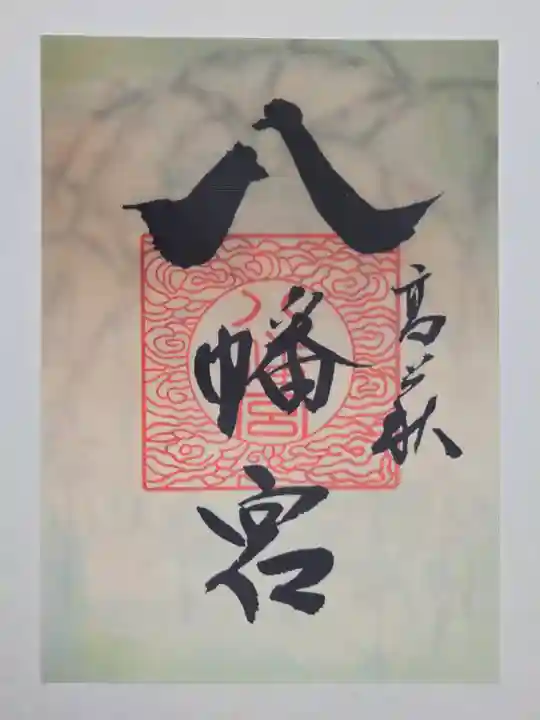 高萩
八幡宮